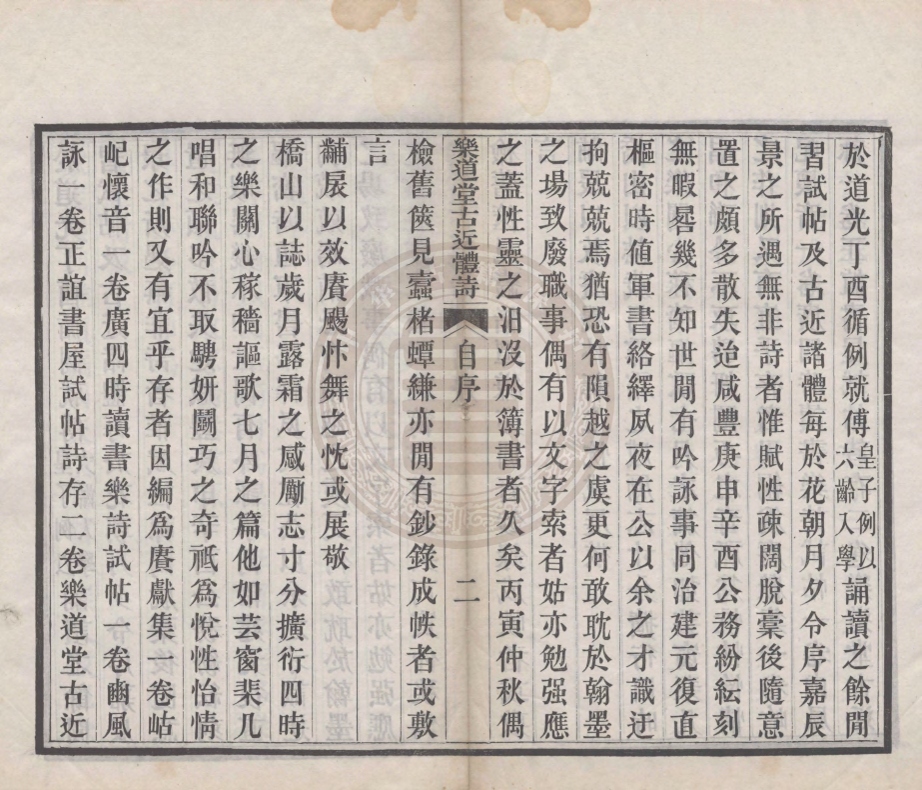 於道光丁酉循例就傅皇子例以六齡入學誦讀之餘閒
習試帖及古近諸體每於花朝月夕令序嘉辰
景之所遇無非詩者惟賦性疎闊脫稾後隨意
置之頗多散失迨咸豐庚申辛酉公務紛紜刻
無暇晷幾不知世閒有吟詠事同治建元復直
樞密時值軍書絡繹夙夜在公以余之才識迂
拘兢兢焉猶恐有隕越之虞更何敢耽於翰墨
之場致廢職事偶有以文字索者姑亦勉强應
之蓋性靈之汨沒於簿書者久矣丙寅仲秋偶
樂道堂古近體詩 自序 二
檢舊篋見蠹楮蟫縑亦閒有鈔錄成帙者或敷
言
黼扆以效賡颺忭舞之忱或展敬
橋山以誌歲月露霜之感勵志寸分擴衍四時
之樂關心稼穡謳歌七月之篇他如芸窗棐几
唱和聯吟不取騁妍鬭巧之奇祗爲悅性怡情
之作則又有宜乎存者因編爲賡獻集一卷岵
屺懷音一卷廣四時讀書樂詩試帖一卷豳風
詠一卷正誼書屋試帖詩存二卷樂道堂古近